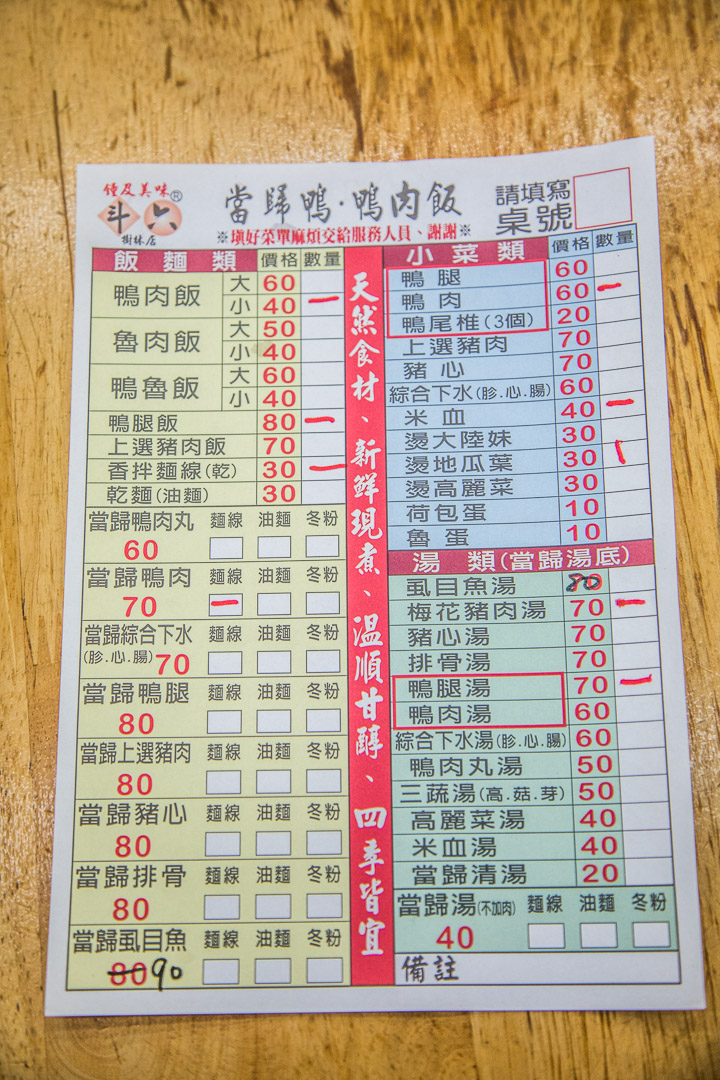 鍾庋美味®
斗六
樹林店
當歸鴨·鴨肉飯
請填寫
桌號
※填好菜單麻煩交給服務人員、謝謝※
飯麵類 價格 數量
鴨肉飯 大 60
小 40 一
魯肉飯 大 50
小 40
鴨魯飯 大 60
小 40
鴨腿飯 80 一
上選豬肉飯 70
香拌麵線(乾) 30 一
乾麵(油麵) 30
當歸鴨肉丸 麵線 油麵 冬粉
60
當歸鴨肉 麵線 油麵 冬粉
70 一
當歸綜合下水 麵線 油麵 冬粉
(胗.心.腸) 70
當歸鴨腿 麵線 油麵 冬粉
80
當歸上選豬肉 麵線 油麵 冬粉
80
當歸豬心 麵線 油麵 冬粉
80
當歸排骨 麵線 油麵 冬粉
80
當歸虱目魚 麵線 油麵 冬粉
80 90
天然食材、新鮮現煮、溫順甘醇、四季皆宜
小菜類 價格 數量
鴨腿 60
鴨肉 60 一
鴨尾椎(3個) 20
上選豬肉 70
豬心 70
綜合下水(胗.心.腸) 60
米血 40 一
燙大陸妹 30
燙地瓜葉 30 |
燙高麗菜 30
荷包蛋 10
魯蛋 10
湯類(當歸湯底)
虱目魚湯 80
梅花豬肉湯 70 一
豬心湯 70
排骨湯 70
鴨腿湯 70 一
鴨肉湯 60
綜合下水湯(胗.心.腸) 60
鴨肉丸湯 50
三蔬湯(高.菇.芽) 50
高麗菜湯 40
米血湯 40
當歸清湯 20
當歸湯(不加肉) 麵線 油麵 冬粉
40
備註